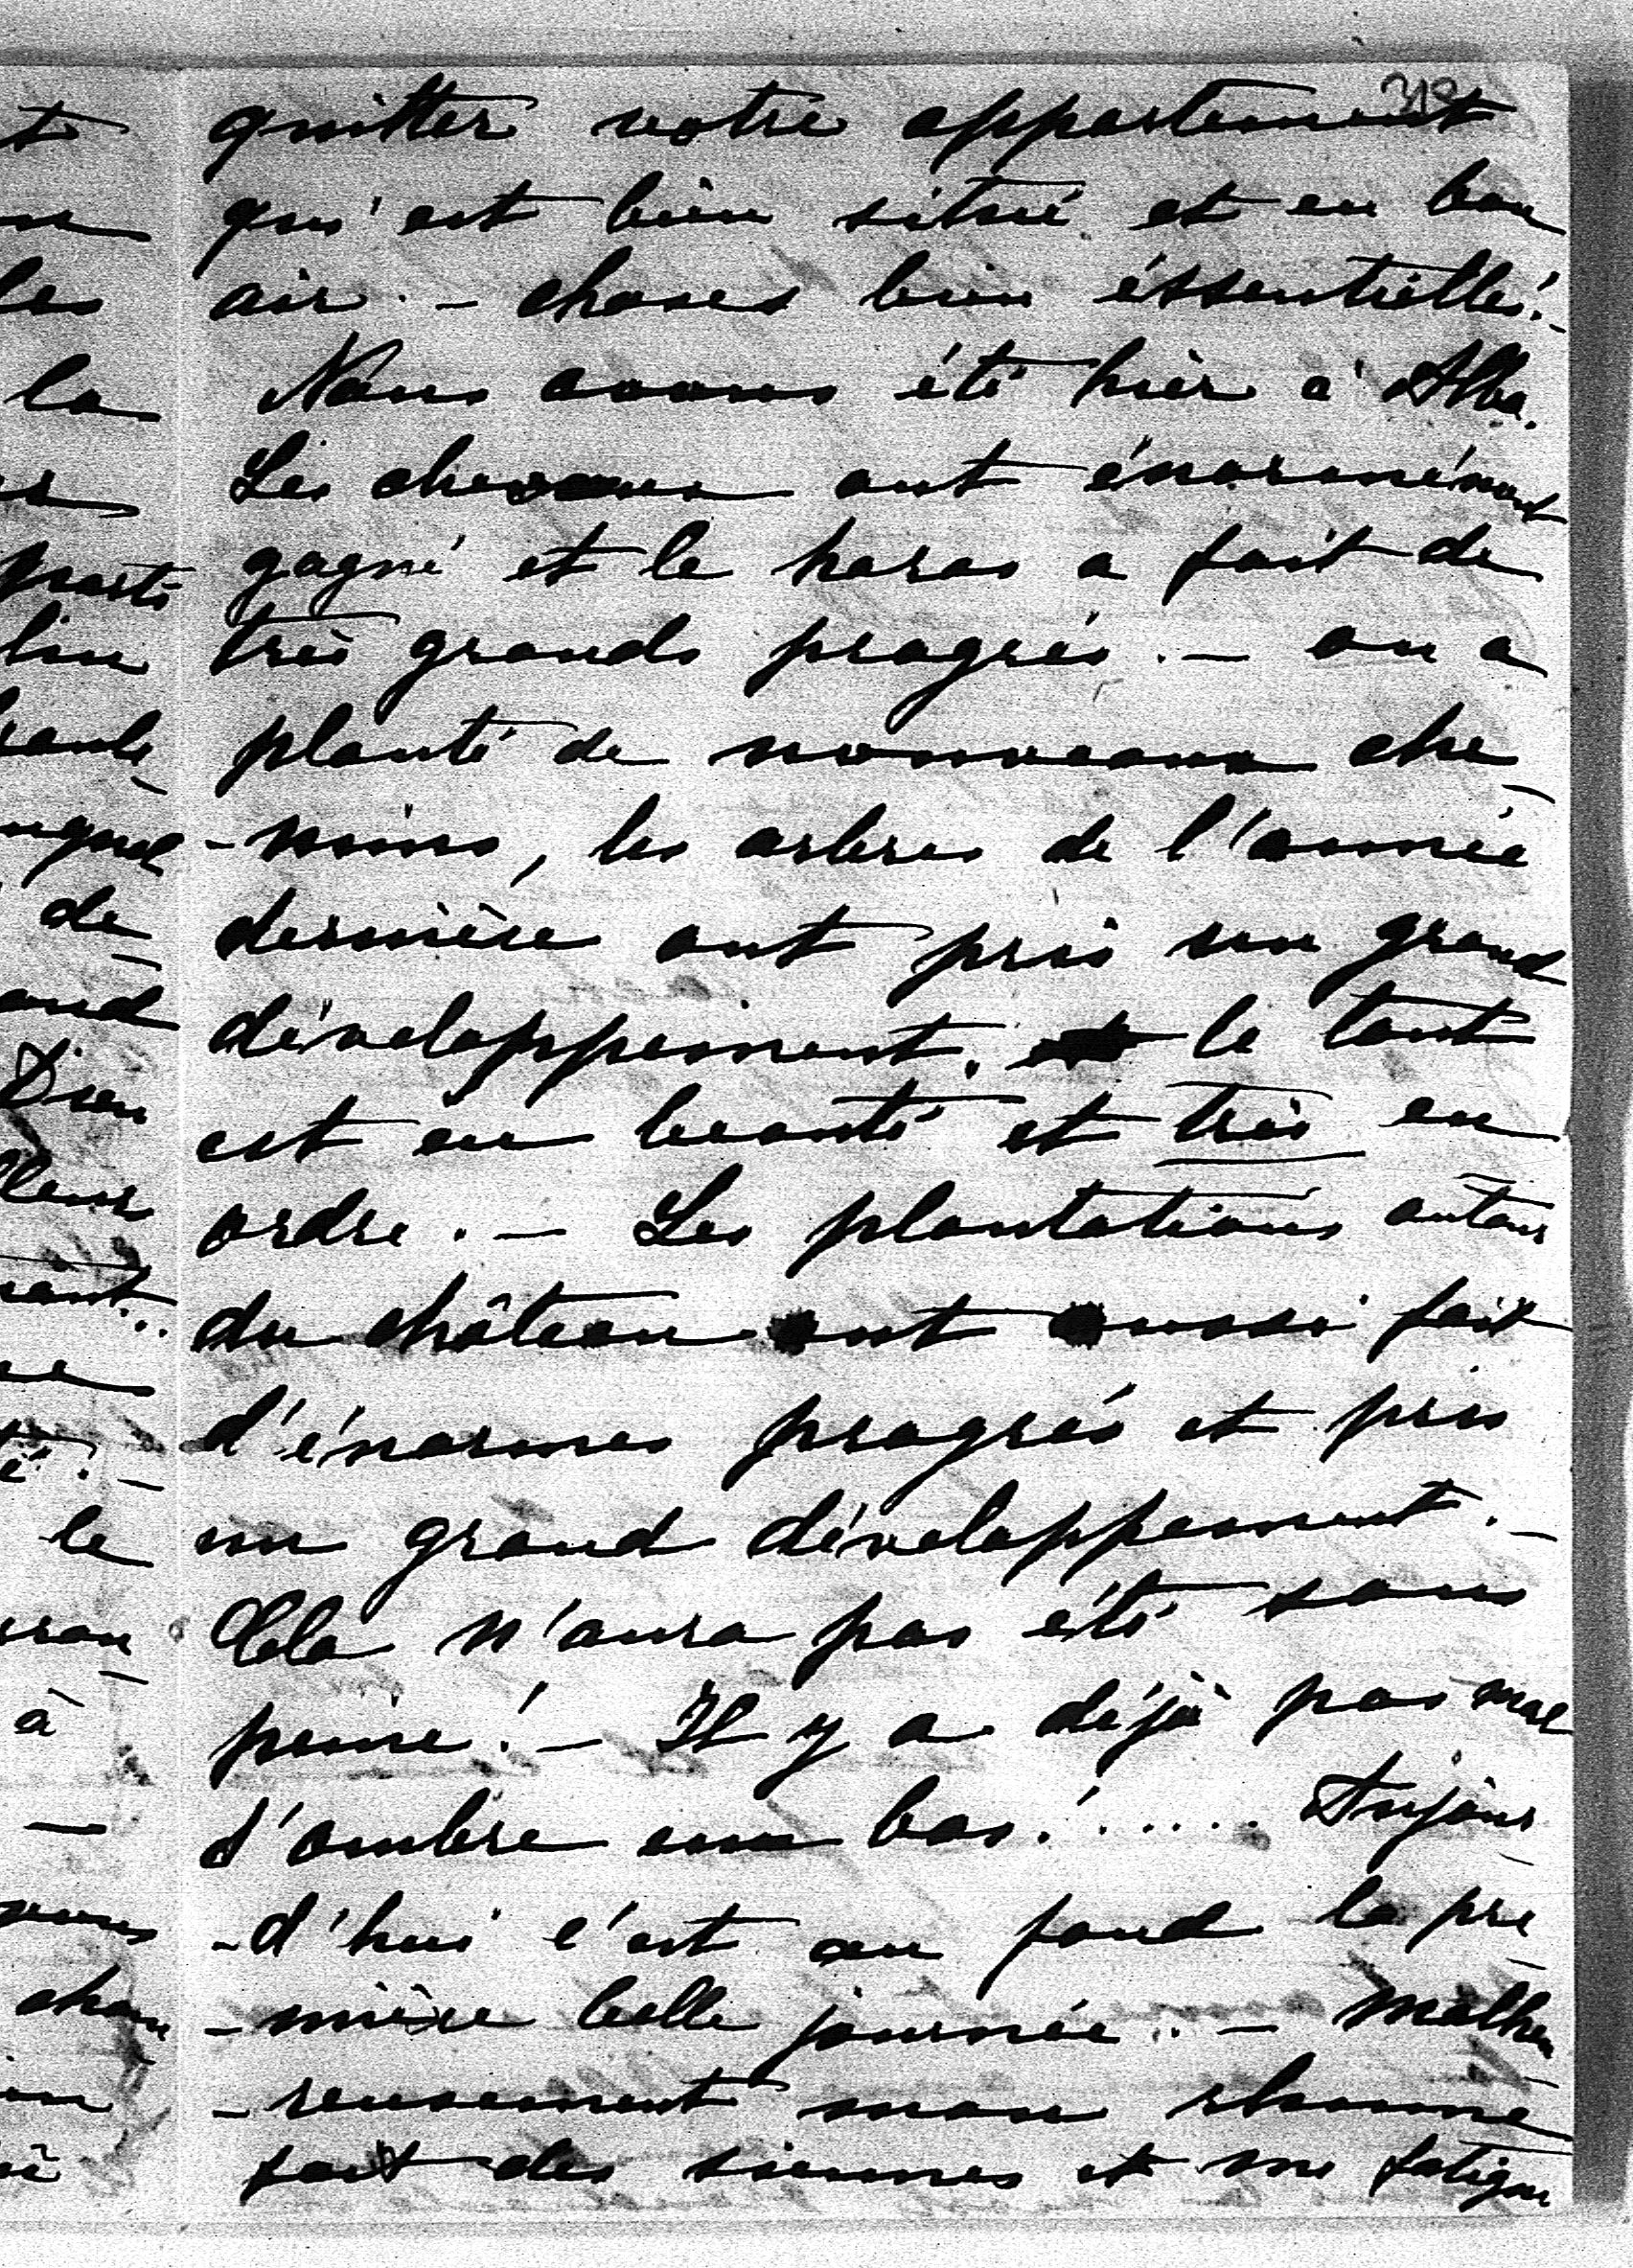 318
quitter votre appartement
qui est bien situé et en bon
air. – choses bien éssentielles!–
Nous avons été hièr à Alba.
Les chevaux ont énormément
gagné et le haras a fait de
très grands progrès. – on a
planté de nouveaux che-
-mins, les arbres de l'année
dernière ont pris un grand
développement. le tout
est en beauté et très en
ordre. – Les plantations autour
du château ont aussi fait
d'énormes progrès et pris
un grand développement. –
Cela n'aura pas été sans
peine! – Il y a déjà pas mal
d'ombre en bas!...... Aujour-
-d'hui c'est au fond la pre-
-mière belle journée.. – Malheu-
-reusement mon rhume
fait des siennes et me fatigue